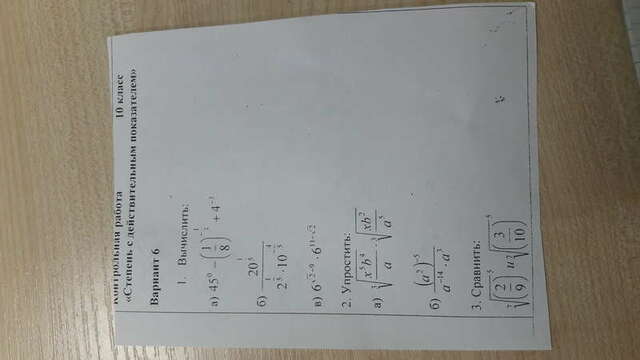 Контрольная работа 10 класс
«Степень с действительным показателем»
Вариант 6
1. Вычислить:
а) 45⁰ − (1/8)^(−1/3) + 4⁻³
б) 20^(1/5) / (2^(1/5) · 10^(−4/5))
в) 6^(√2−9) · 6^(11−√2)
2. Упростить:
а) ³√(x⁵b⁴/a) · ³√(xb²/a⁵)
б) (a²)⁻⁵ / (a⁻¹⁴ · a³)
3. Сравнить:
⁷√((2/9)⁵) и ⁷√((3/10)⁵)